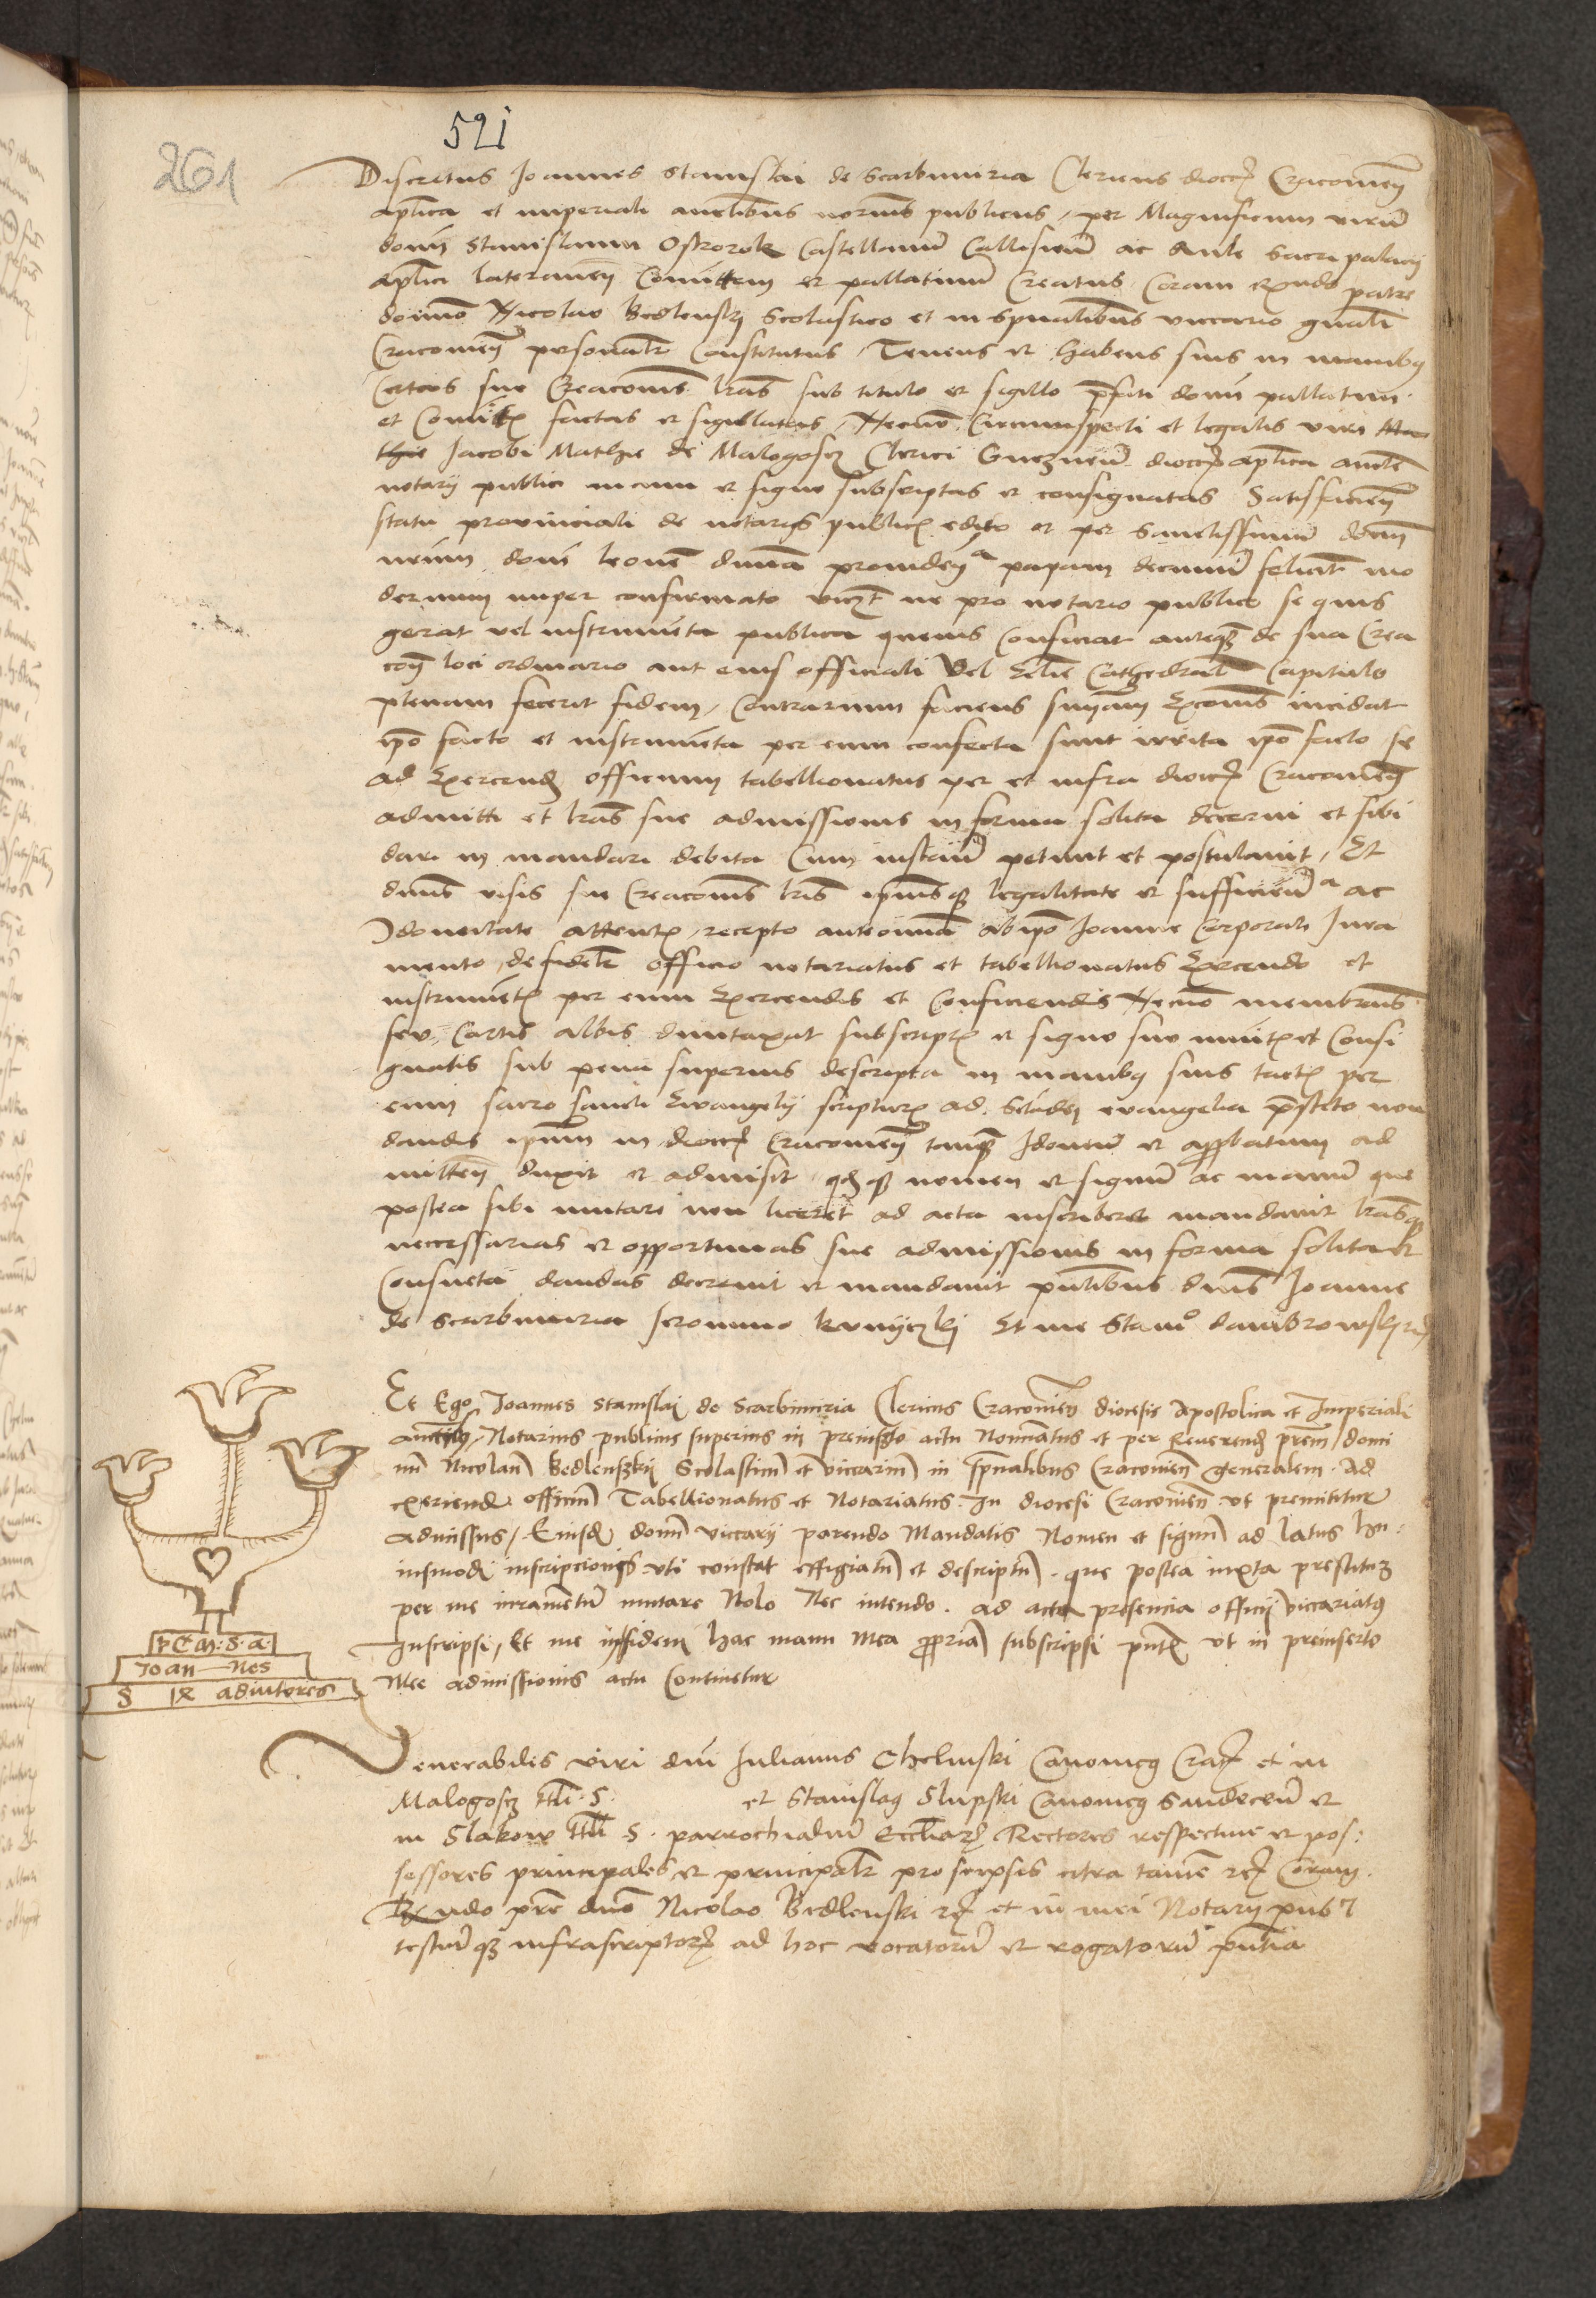 521
261
Discretus Joannes Stanislai de Scarbimiria Clericus dioc Cracovien
aplica et imperiali auctibus notarius publicus, per Magnificum virum
domi Stanislaum Ostrorok Castellanum Callisien ac Aule Sacri palacij
aplici lateranen Comittem et pallatinum Creatus, Coram Rndo patre
domino Nicolao Bedlenskj Scolastico et in spualibus viccario gnali
Cracovien personalr Constitutus, Tenens et habens suis in manibus
certas sue Creaconis lras sub titulo et sigillo pfati domi pallatini
et Comitis factas et sigillatas, Necnon Circumspecti et legalis viri Ma
thie Jacobi Mathie de Malogoscz Clerici Gneznen dioc aplica aucte
notarij publici manu et signo subscriptas et consignatas Satisfacien
statu provinciali de notarijs publicis edito et per Sanctissimum domi
nrum domi leonem divina providen a papam decimum felicit mo
dernum nuper confirmato viczt ne pro notario publico se quis
gerat vel instrumenta publica quevis Conficiat anteq de sua Crea
con loci ordinario aut eius officiali Vel Eclie Cathedralis Capitulo
plenam fecerit fidem, Contrarium faciens sniam Excois incidat
ipo facto et instrumenta per eum confecta sunt irrita ipo facto se
ad Exercend officium tabellionatus per et infra dioc Cracovien
admitti et lras sue admissionis in forma solita decerni et sibi
dari in mandari debita Cum instan petivit et postulavit, Et
dnus visis sue Creaconis lris ipiusq legalitate et sufficien a ac
Idoneitate attentis, recepto anteomnia ab ipo Joanne Corporali Jura
mento, de fideli officio notariatus et tabellionatus Exercendo et
instrumentis per eum Exercendis et Conficiendis Necnon membranis
seu Cartis albis dumtaxat subscriptis et signo suo munitis et Consi
gnatis sub pena superius descripta in manibus suis tactis per
eum sacro sancti Evangelij scripturis ad evangelia pstito non
dandis ipum in dioc Cracovien tanq Idoneum et approbatum ad
mitten duxit et admisit nomen et signum ac manum que
postea sibi mutari non liceret ad acta inscribere mandavit lrasq
necessarias et opportunas sue admissionis in forma solita et
Consueta dandas decrevit et mandavit pntibus dnis Joanne
de Scarbimiria Jeronimo et me Stanio dambrowsky
Et Ego Joannes Stanislai de Scarbimiria Clericus Cracovien diocesis Apostolica et Imperiali
auctibus, Notarius publicus superius in premisso actu Nominatus et per Reverend prem domi
num Nicolaum Bedlenskij Scolasticum et viccarium in spualibus Cracovien generalem. Ad
exercend officium Tabellionatus et Notariatus. In diocesi Cracovien ut premittitur
admissus, Eiusd domi viccarij parendo Mandatis Nomen et signum ad latus hu:
iusmodi inscripcionis uti constat effigiatum et descriptum. que postea iuxta prestitum
per me iuramentum mutare Nolo Nec intendo. ad acta presencia officij viccariatus
Inscripsi, Et me infidem hac manu Mea ppria subscripsi pntis ut in preinserto
Mee admissionis actu Continetur
p C m: S: a:
Joan nes
S IX adiutores
Venerabiles viri dni Julianus Chelmski Canonicus Crac et in
Malogoscz tlli. S. et Stanislaus Slupski Canonicus Sandecen et
in Slakow tlli S. parrochialium Eccliar Rectores respective et pos:
sessores principales et principalr pro seipsis citra tamen Coram
Rndo pre dno Nicolao Bedlenski et in mei Notarij pub
testiumq infrascriptor ad hoc vocatorum et rogatorum pntia